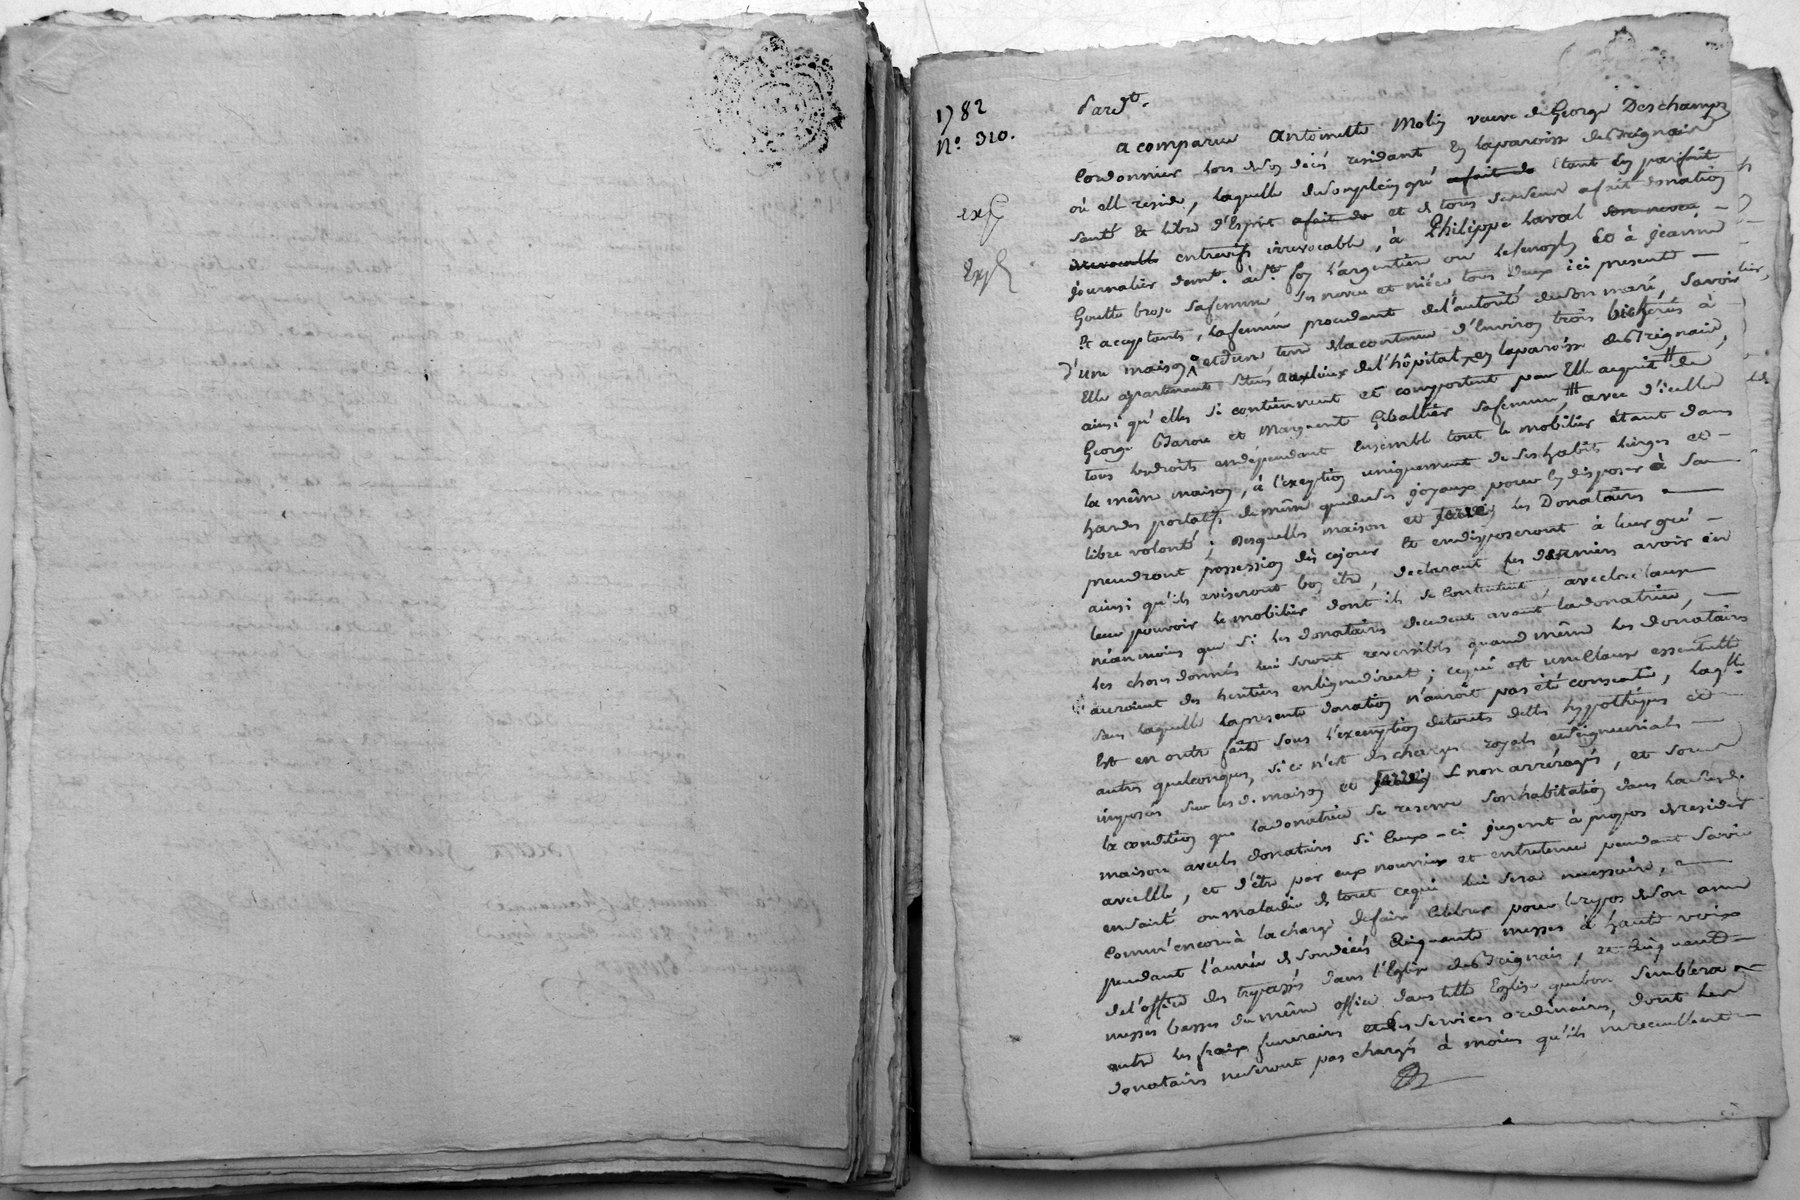 1782
N.º 310.
Pard.t
a comparue Antoinette Molin veuve de George Deschamps
Cordonnier lors de son décés residant en la paroisse de Treignain
où elle reside, laquelle de son plein gré a fait do étant en parfaite
santé et libre d'Esprit a fait do et de tous ses sens a fait donation
irrevocable entrevifs irrevocable, à Philippe Laval son neveu
journalier demt. à St. foy l'argentiere ou les enoyls et à jeanne
Goutte brose sa femme ses neveu et niéce tous deux ici presents
et acceptants, la femme procedant de l'autorité de son mari, savoir
d'une maison et d'un terre de la contenue d'Environ trois bicherés à
Elle appartenants situés aux lieux de l'hôpital, en la paroisse de Treignain,
ainsi qu'elles si contiennent et comportent par Elle acquit de
George Barou et Marguerit Giballier sa femme, avec d'icelles
tous les droits en dependant Ensemble tout le mobilier étant dans
la même maison, à l'exeption uniquement de ses habits linges et
hardes portatifs de même que de ses joyaux pour en disposer à sa
libre volonté; desquelles maison et terre les Donataires
prendront possession dès ce jour et en disposeront à leur gré
ainsi qu'ils aviseront bon être, declarant ces derniers avoir en
leur pouvoir le mobilier dont ils se contentent, avec la clause
néanmoins que si les donataires decedent avant la donatrice,
les choses données lui seront reversibles quand même les donataires
auroient des heritiers en ligne directe; ce qui est une clause essentielle
sans laquelle la presente donation n'auroit pas été consentie, laqlle
Est en outre faite sous l'exemption de toutes dettes hypothéques et
autres quelconques, si ce n'est des charges royales et seigneuriales
imposés sur les d. maison et terre non arréragés, et sous
la condition que la donatrice se reserve son habitation dans la susde.
maison avec les donataires si Ceux-ci jugent à propos de resider
avec Elle, et d'être par eux nourrie et entretenue pendant sa vie
en santé ou maladie de tout ce qui lui sera necessaire,
Comm'encor à la charge de faire célébrer pour le repos de son ame
pendant l'année de son décés Cinquante messes à haute voix
de l'office des trepassés dans l'Eglise de Treignain, et Cinquante
messes basses du même office dans telle Eglise que bon semblera
outre les frais funeraires et les services ordinaires, dont les
donataires ne seront pas chargés à moins qu'ils ne recueillent